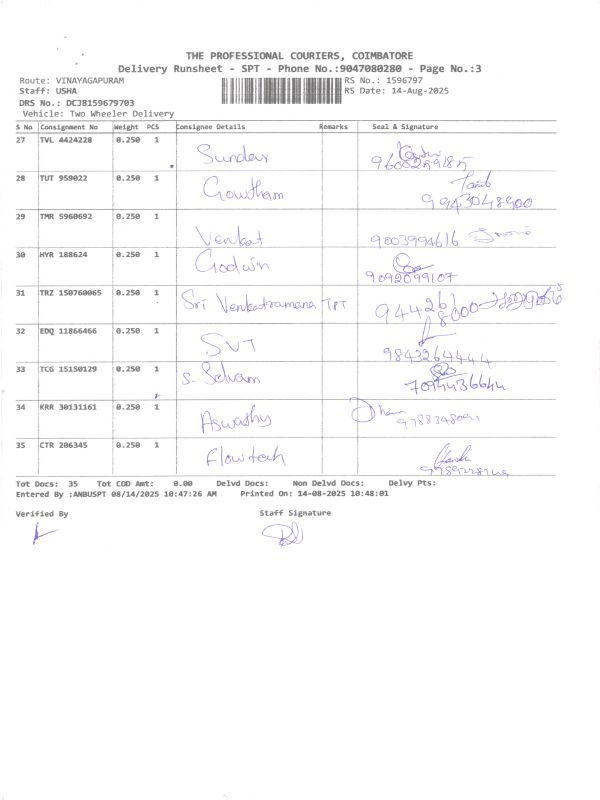 THE PROFESSIONAL COURIERS, COIMBATORE
Delivery Runsheet - SPT - Phone No.:9047080280 - Page No.:3
Route: VINAYAGAPURAM RS No.: 1596797
Staff: USHA RS Date: 14-Aug-2025
DRS No.: DCJB159679703
Vehicle: Two Wheeler Delivery
S No Consignment No Weight PCS Consignee Details Remarks Seal & Signature
27 TVL 4424228 0.250 1 Sundar 9600259185
28 TUT 959022 0.250 1 Gowtham 9943048900
29 TMR 5960692 0.250 1 Venkat 9003994616
30 HYR 188624 0.250 1 Godwin 9092099107
31 TRZ 150760065 0.250 1 Sri Venkatramana TPT 944261
8000
32 EDQ 11866466 0.250 1 SVT 9843264444
33 TCG 15150129 0.250 1 S. Selvam 7094436644
34 KRR 30131161 0.250 1 Aswathy 9788348091
35 CTR 206345 0.250 1 Flowtech
Tot Docs: 35 Tot COD Amt: 0.00 Delvd Docs: Non Delvd Docs: Delvy Pts:
Entered By :ANBUSPT 08/14/2025 10:47:26 AM Printed On: 14-08-2025 10:48:01
Verified By Staff Signature